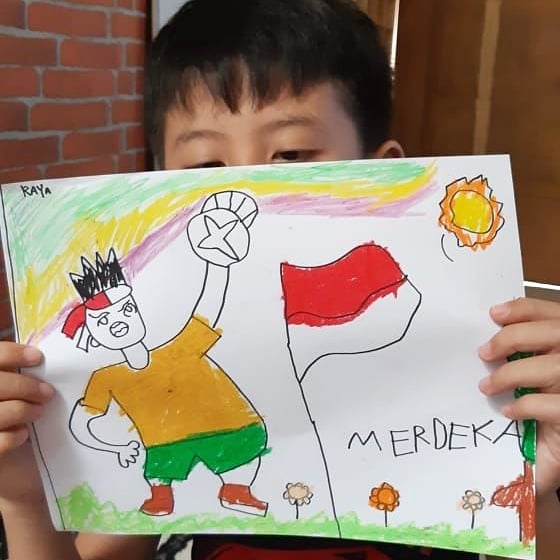 RAYA
MERDEKA